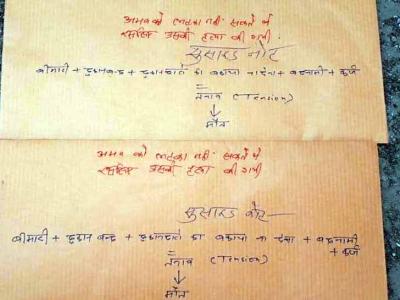 अमन को लटका नहीं सकते थे
इसलिए उसकी हत्या की गयी
सुसाइड नोट
बीमारी + दुकान बन्द + दुकानदारो का बकाया ना देना + बदनामी + कर्ज
=
तनाव (Tension)
↓
मौत
अमन को लटका नहीं सकते थे
इसलिए उसकी हत्या की गयी
सुसाइड नोट
बीमारी + दुकान बन्द + दुकानदारो का बकाया ना देना + बदनामी
+ कर्ज
=
तनाव (Tension)
↓
मौत